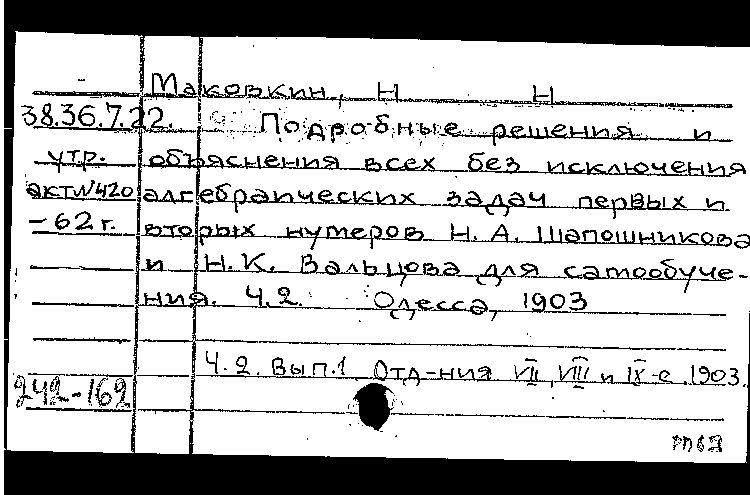 Маковкин, Н Н
38.36.7.22. Подробные решения и
утр. объяснения всех без исключения
акт №420 алгебраических задач первых и
-62 г. вторых нумеров Н. А. Шапошникова
и Н. К. Вальцова для самообуче-
ния. Ч. 2. Одесса, 1903
Ч. 2. Вып. 1 Отд-ния VII, VIII и IX-е. 1903.
242-162